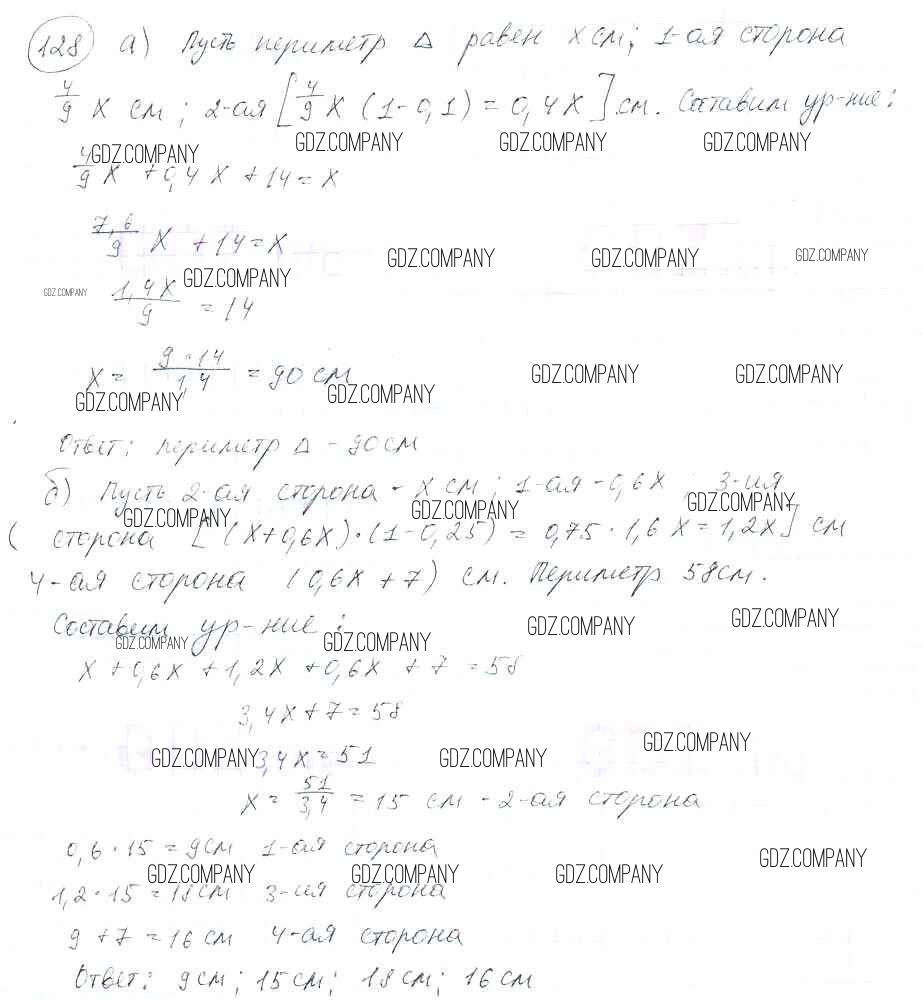 128 а) Пусть периметр Δ равен x см; 1-ая сторона
4/9 x см; 2-ая [4/9 x (1-0,1) = 0,4x] см. Составим ур-ние:
GDZ.COMPANY GDZ.COMPANY GDZ.COMPANY GDZ.COMPANY
4/9 x + 0,4x + 14 = x
7,6/9 x + 14 = x
GDZ.COMPANY GDZ.COMPANY GDZ.COMPANY
GDZ.COMPANY GDZ.COMPANY
1,4x/9 = 14
x = 9·14/1,4 = 90 см
GDZ.COMPANY GDZ.COMPANY
GDZ.COMPANY GDZ.COMPANY
Ответ: периметр Δ - 90 см
б) Пусть 2-ая сторона - x см; 1-ая - 0,6x; 3-ия
GDZ.COMPANY GDZ.COMPANY GDZ.COMPANY
( сторона [(x+0,6x)·(1-0,25) = 0,75·1,6x = 1,2x] см
4-ая сторона (0,6x + 7) см. Периметр 58см.
Составим ур-ние:
GDZ.COMPANY GDZ.COMPANY GDZ.COMPANY GDZ.COMPANY
x + 0,6x + 1,2x + 0,6x + 7 = 58
3,4x + 7 = 58
GDZ.COMPANY 3,4x = 51 GDZ.COMPANY GDZ.COMPANY
x = 51/3,4 = 15 см - 2-ая сторона
0,6·15 = 9см 1-ая сторона
GDZ.COMPANY GDZ.COMPANY GDZ.COMPANY GDZ.COMPANY
1,2·15 = 18см 3-ия сторона
9 + 7 = 16 см 4-ая сторона
Ответ: 9см; 15см; 18см; 16см